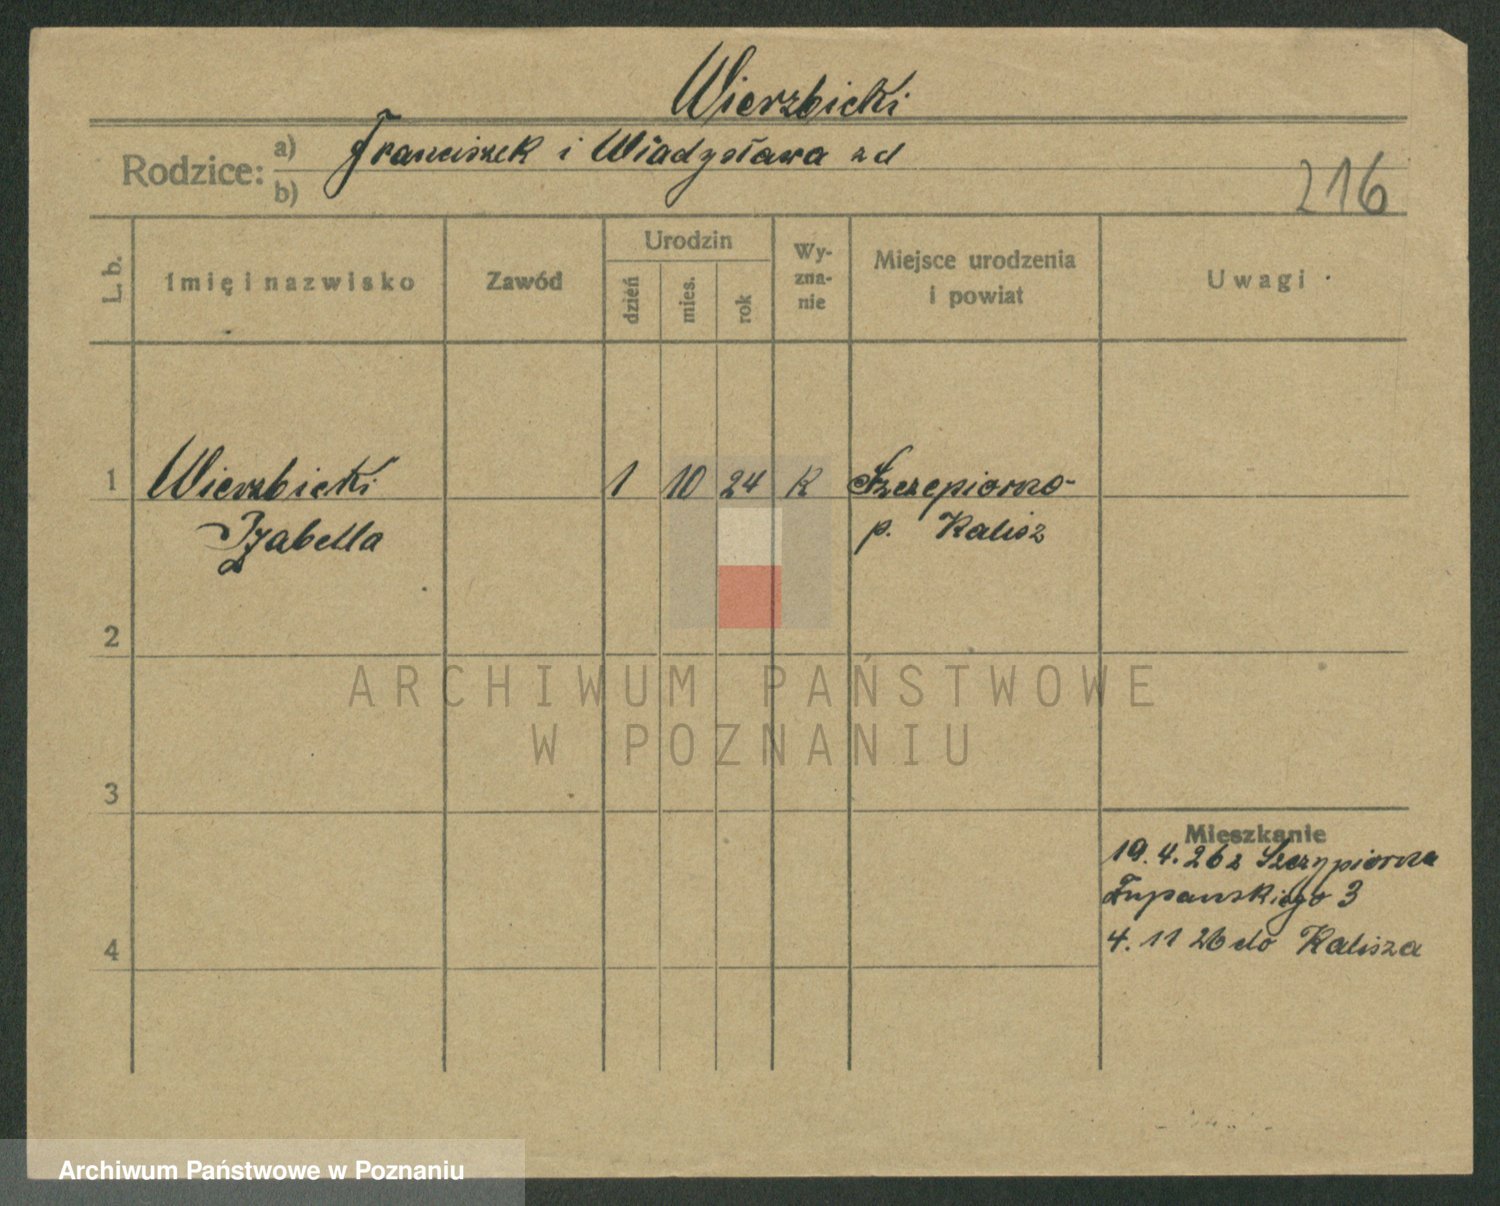 Wierzbicki
Rodzice: a) Franciszek i Władysława zd
b)
216
L. b.
Imię i nazwisko
Zawód
Urodzin
dzień
mies.
rok
Wy-
zna-
nie
Miejsce urodzenia
i powiat
Uwagi
1 Wierzbicki 1 10 24 K Szczepiorno
Izabella p. Kalisz
2
ARCHIWUM PAŃSTWOWE
W POZNANIU
3
Mieszkanie
19.4.26 z Szczypiorna
Żupańskiego 3
4. 11 26 do Kalisza
4
Archiwum Państwowe w Poznaniu